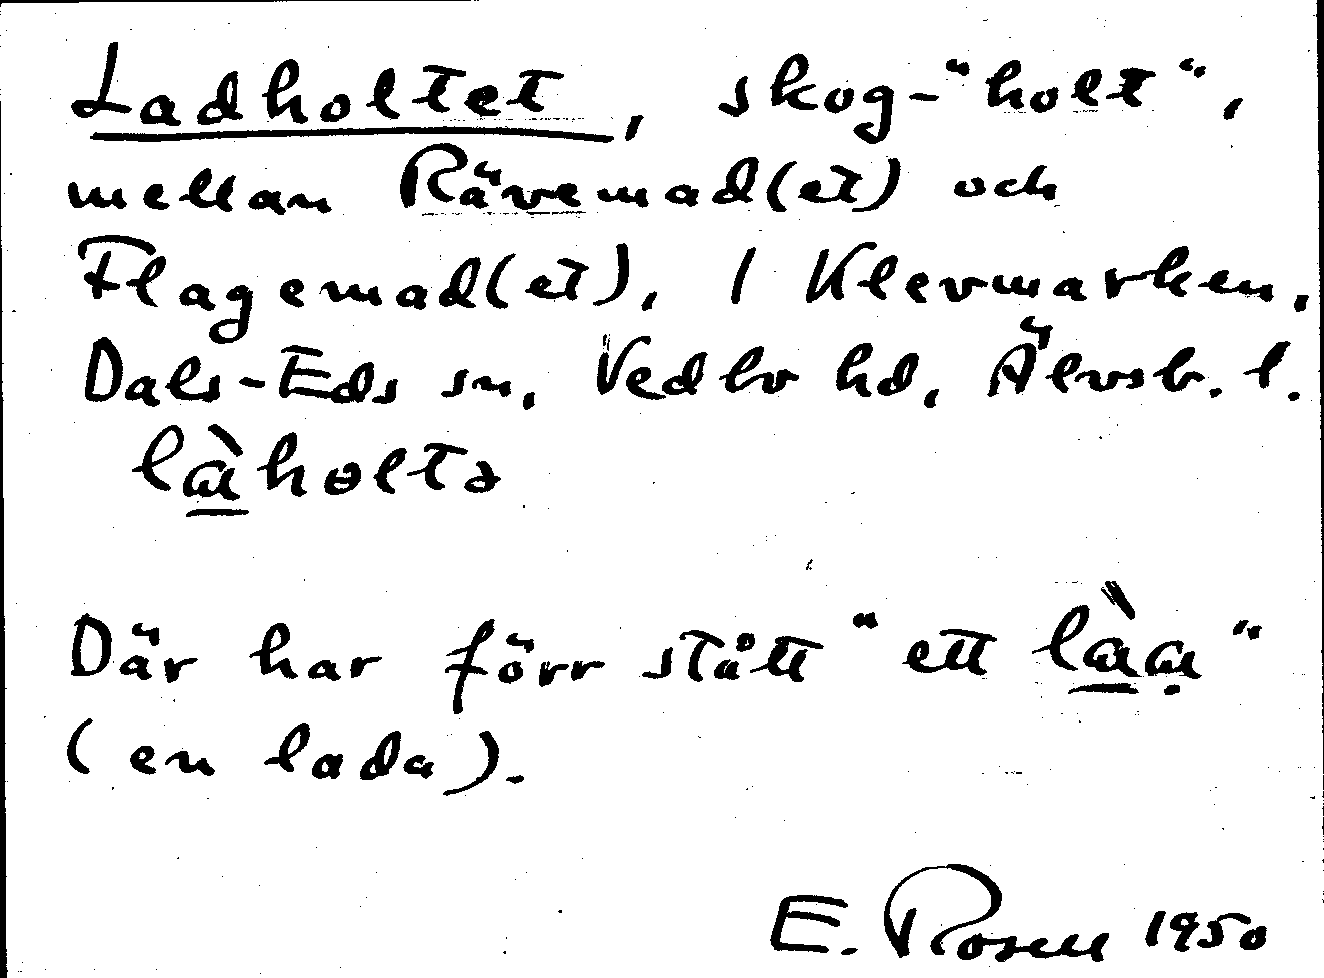 Ladholtet, skog-"holt",
mellan Rävemad(et) och
Flagemad(et), I Klevmarken,
Dals-Eds sn, Vedbo hd, Älvsb. l.
làholtə
Där har förr stått "ett làa̩"
(en lada).
E. Rosell 1950